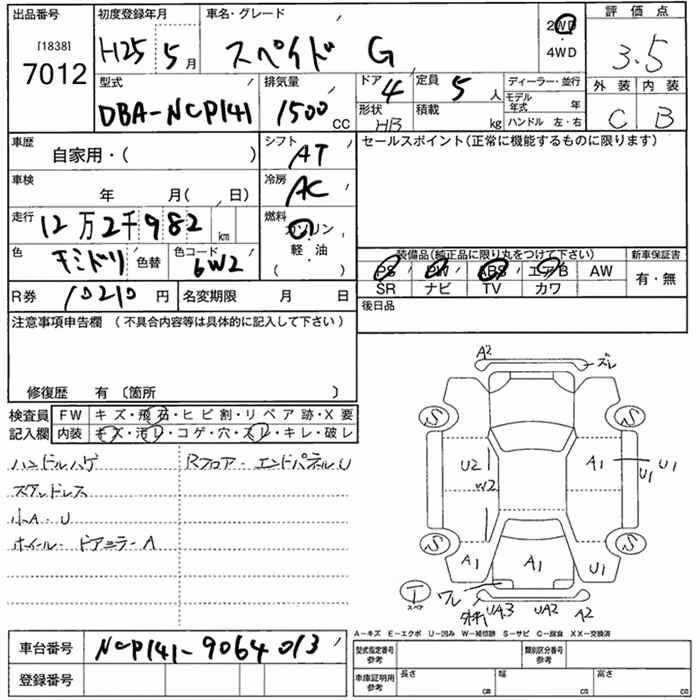 出品番号 初度登録年月 車名・グレード 評価点
[1838]
7012 H25 5月 スペイド G 2WD ・ 4WD 3.5
型式 排気量 ドア 4 定員 5 人 ディーラー・並行 外装 内装
DBA-NCP141 1500 CC 形状 HB 積載 kg モデル年式 年 C B
ハンドル 左・右
車歴 自家用・( ) シフト AT セールスポイント(正常に機能するものに限ります)
車検 年 月( 日) 冷房 AC
走行 12万2千982 km 燃料 ガソリン・軽・油
色 色替 色コード 6W2 装備品(純正品に限り丸をつけて下さい) 新車保証書
PS PW ABS エアB AW 有・無
SR ナビ TV カワ
R券 10210円 名変期限 月 日 後日品
注意事項申告欄 (不具合内容等は具体的に記入して下さい)
修復歴 有 〔箇所 〕
検査員記入欄 FW キズ・飛石・ヒビ割・リペア跡・X要
内装 キズ・汚レ・コゲ・穴・スレ・キレ・破レ
ハンドルハゲ Rフロア・エンドパネルU
スタッドレス
小A・U
ホイール・ドアミラーA
A2 ズレ
S S
U2 W2 A1 U1 U1
S S
A1 A1 U1
T スペア ワレ UA3 UA2 A2
A-キズ E-エクボ U-凹み W-補修跡 S-サビ C-腐食 XX-交換済
車台番号 NCP141-9064013 型式指定番号 参考 類別区分番号 参考
登録番号 車庫証明用 参考 長さ cm 幅 cm 高さ cm